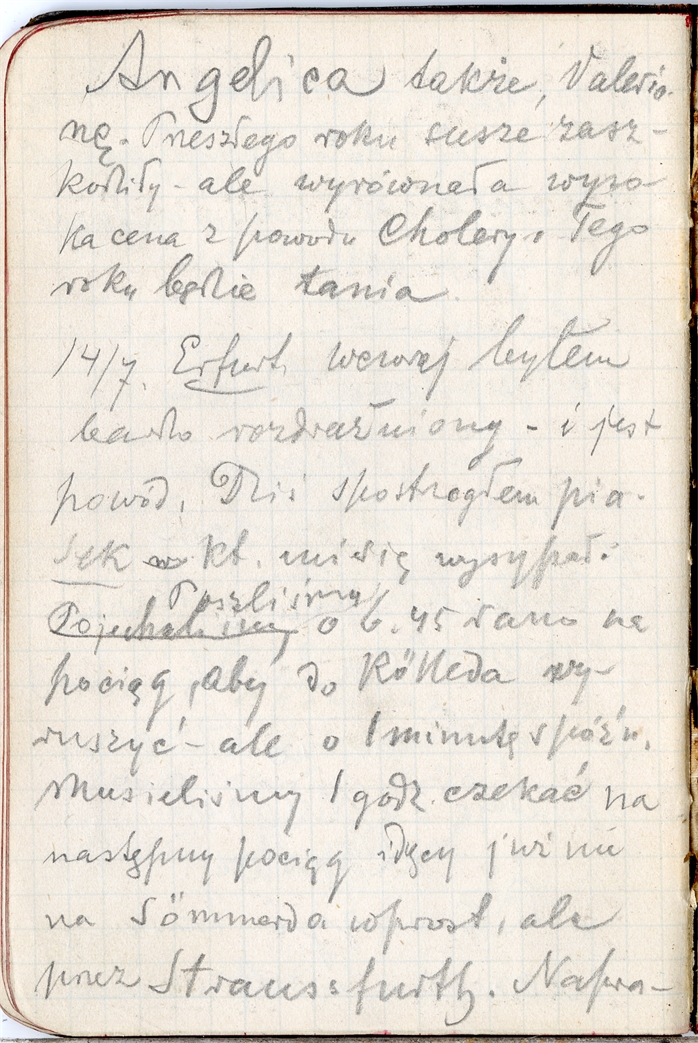 Angelica także, Valeria-
nę. Przeszłego roku susze zasz-
kodziły - ale wyrównała wyso-
ka cena z powodu Cholery. Tego
roku będzie tania.
14/7. Erfurt. wczoraj byłem
bardzo rozdrażniony - i jest
powód. Dziś spostrzegłem pia-
sek kt. mi się wysypał.
Poszliśmy
Pojechaliśmy o 6.45 rano na
pociąg, aby do Kölleda wy-
ruszyć - ale o 1 minutę spóźn.
Musieliśmy 1 godz. czekać na
następny pociąg idący już nie
na Sömmerda wprost, ale
przez Straussfurth. Napra-